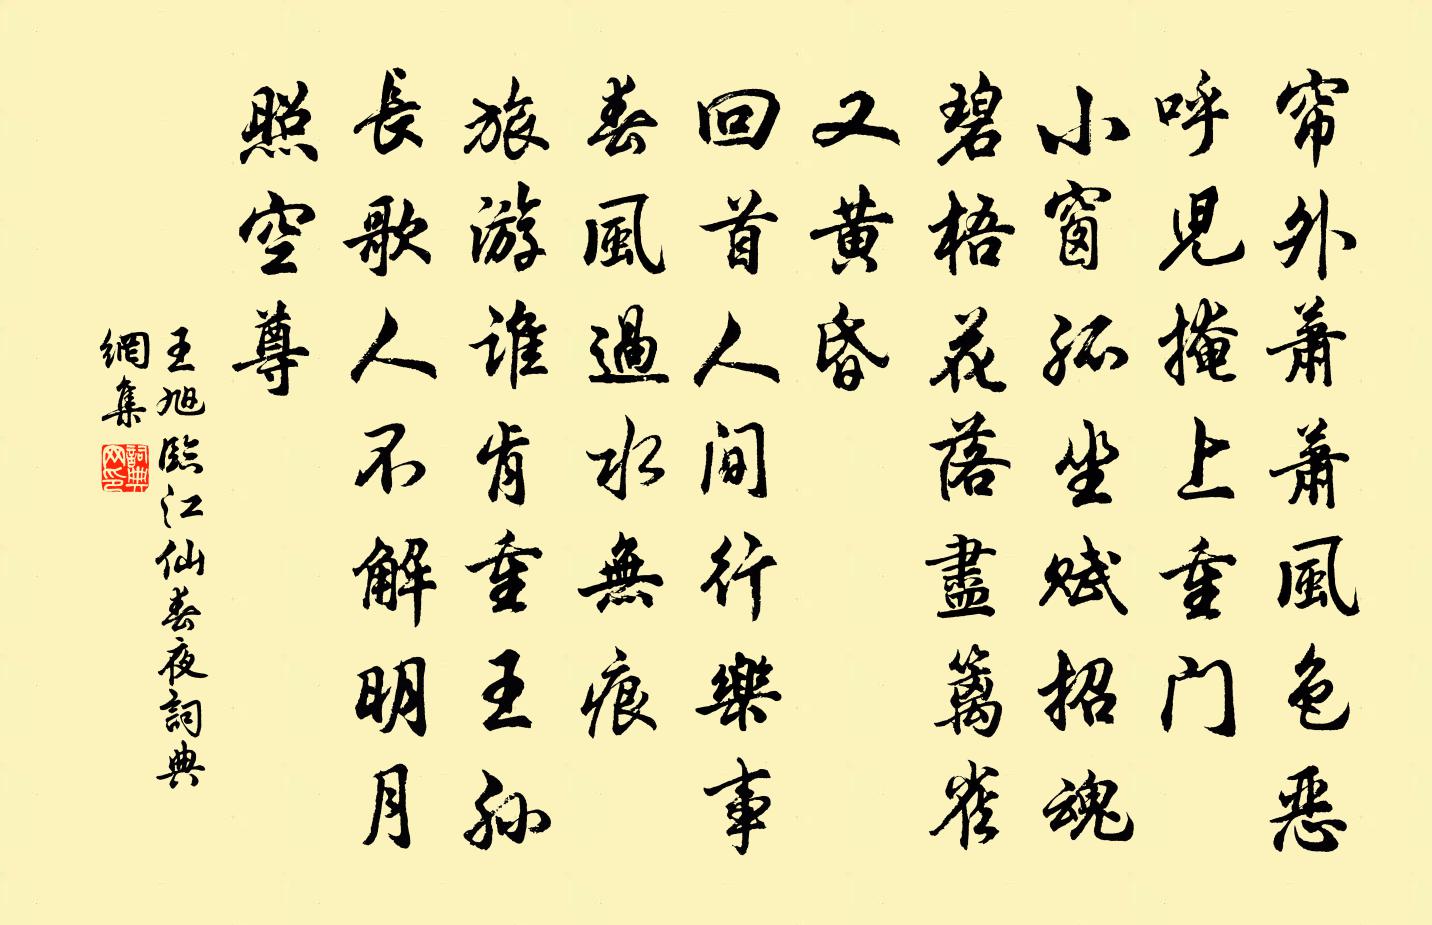 帘外蕭蕭風色惡
呼兒掩上重门
小窗孤坐賦招魂
碧梧花落盡篱雀
又黄昏
回首人间行樂事
春風過水無痕
旅游谁肯重王孙
長歌人不解明月
照空尊
王旭臨江仙春夜詞典
網集
詞典
网印